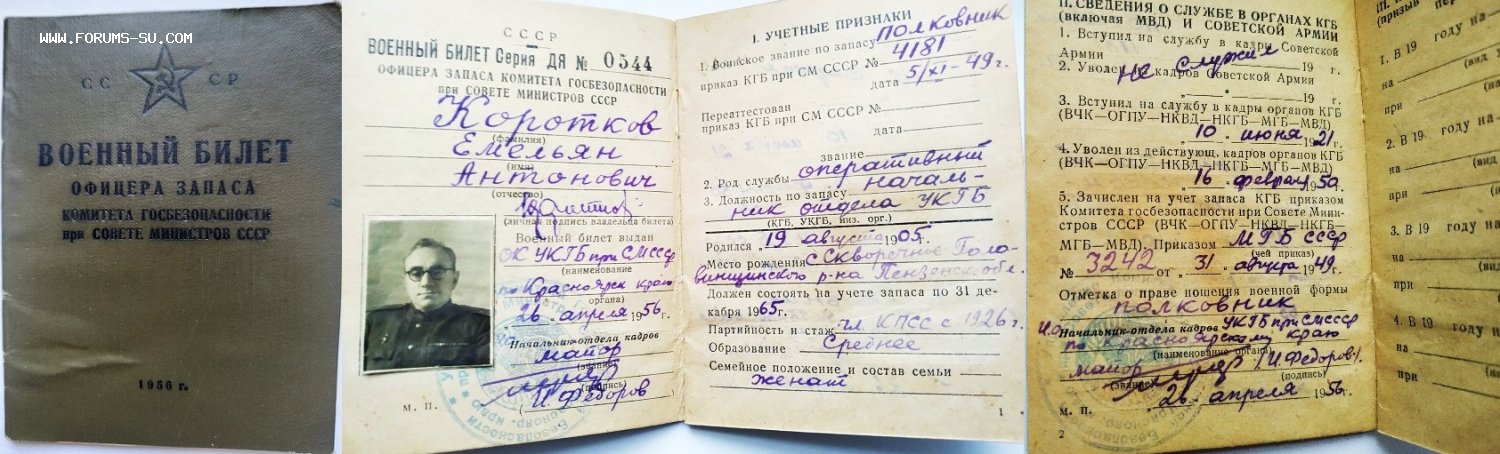 WWW.FORUMS-SU.COM
СС СР
ВОЕННЫЙ БИЛЕТ
ОФИЦЕРА ЗАПАСА
КОМИТЕТА ГОСБЕЗОПАСНОСТИ
при СОВЕТЕ МИНИСТРОВ СССР
1956 г.
СССР
ВОЕННЫЙ БИЛЕТ Серия ДЯ № 0544
ОФИЦЕРА ЗАПАСА КОМИТЕТА ГОСБЕЗОПАСНОСТИ
при СОВЕТЕ МИНИСТРОВ СССР
Коротков
(фамилия)
Емельян
(имя)
Антонович
(отчество)
(личная подпись владельца билета)
Военный билет выдан
ОК УКГБ при СМ СССР
(наименование
по Красноярск краю
органа)
26 апреля 1956 г.
Начальник отдела кадров
майор
(звание)
(подпись)
И. Федоров
М. П.
I. УЧЕТНЫЕ ПРИЗНАКИ
1. Воинское звание по запасу полковник
приказ КГБ при СМ СССР № 4181
дата 5/XI-49 г.
Переаттестован
приказ КГБ при СМ СССР №
дата
звание
2. Род службы оперативный
3. Должность по запасу началь-
ник отдела УКГБ
(КГБ, УКГБ, низ. орг.)
Родился 19 августа 1905 г.
Место рождения с Скворечное Голо-
винщинского р-на Пензенск. обл.
Должен состоять на учете запаса по 31 де-
кабря 1965 г.
Партийность и стаж чл. КПСС с 1926 г.
Образование Среднее
Семейное положение и состав семьи
женат
1
II. СВЕДЕНИЯ О СЛУЖБЕ В ОРГАНАХ КГБ
(включая МВД) И СОВЕТСКОЙ АРМИИ
1. Вступил на службу в кадры Советской
Армии 19 г.
не служил
2. Уволен из кадров Советской Армии
19 г.
3. Вступил на службу в кадры органов КГБ
(ВЧК—ОГПУ—НКВД—НКГБ—МГБ—МВД)
10 июня 21
4. Уволен из действующ. кадров органов КГБ
(ВЧК—ОГПУ—НКВД—НКГБ—МГБ—МВД)
16 февраля 1950 г.
5. Зачислен на учет запаса КГБ приказом
Комитета госбезопасности при Совете Мини-
стров СССР (ВЧК—ОГПУ—НКВД—НКГБ—
МГБ—МВД). Приказом МГБ СССР
(чей приказ)
№ 3242 от 31 августа 1949 г.
Отметка о праве ношения военной формы
полковник
И.о. Начальник отдела кадров УКГБ при СМ СССР
по Красноярскому краю
(наименование органа)
майор (И. Федоров).
(звание) (подпись)
26 апреля 1956 г.
М. П.
2
(призыв
1. В 19 году на
на
при
2. В 19 году на
на
при
3. В 19 году
на
при
4. В 19 году н
на
при